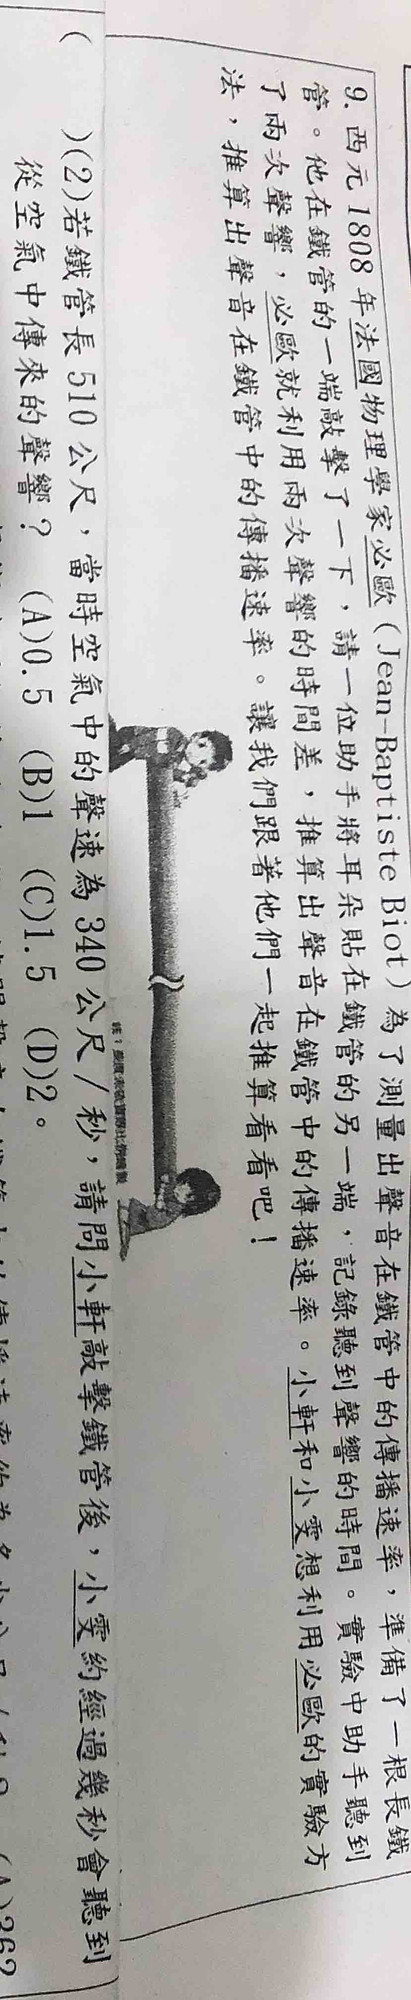 9. 西元 1808 年法國物理學家必歐（Jean-Baptiste Biot）為了測量出聲音在鐵管中的傳播速率，準備了一根長鐵
管。他在鐵管的一端敲擊了一下，請一位助手將耳朵貼在鐵管的另一端，記錄聽到聲響的時間。實驗中助手聽到
了兩次聲響，必歐就利用兩次聲響的時間差，推算出聲音在鐵管中的傳播速率。小軒和小雯想利用必歐的實驗方
法，推算出聲音在鐵管中的傳播速率。讓我們跟著他們一起推算看看吧！
(　)(2)若鐵管長 510 公尺，當時空氣中的聲速為 340 公尺/秒，請問小軒敲擊鐵管後，小雯約經過幾秒會聽到
從空氣中傳來的聲響？ (A)0.5 (B)1 (C)1.5 (D)2。
(A)362